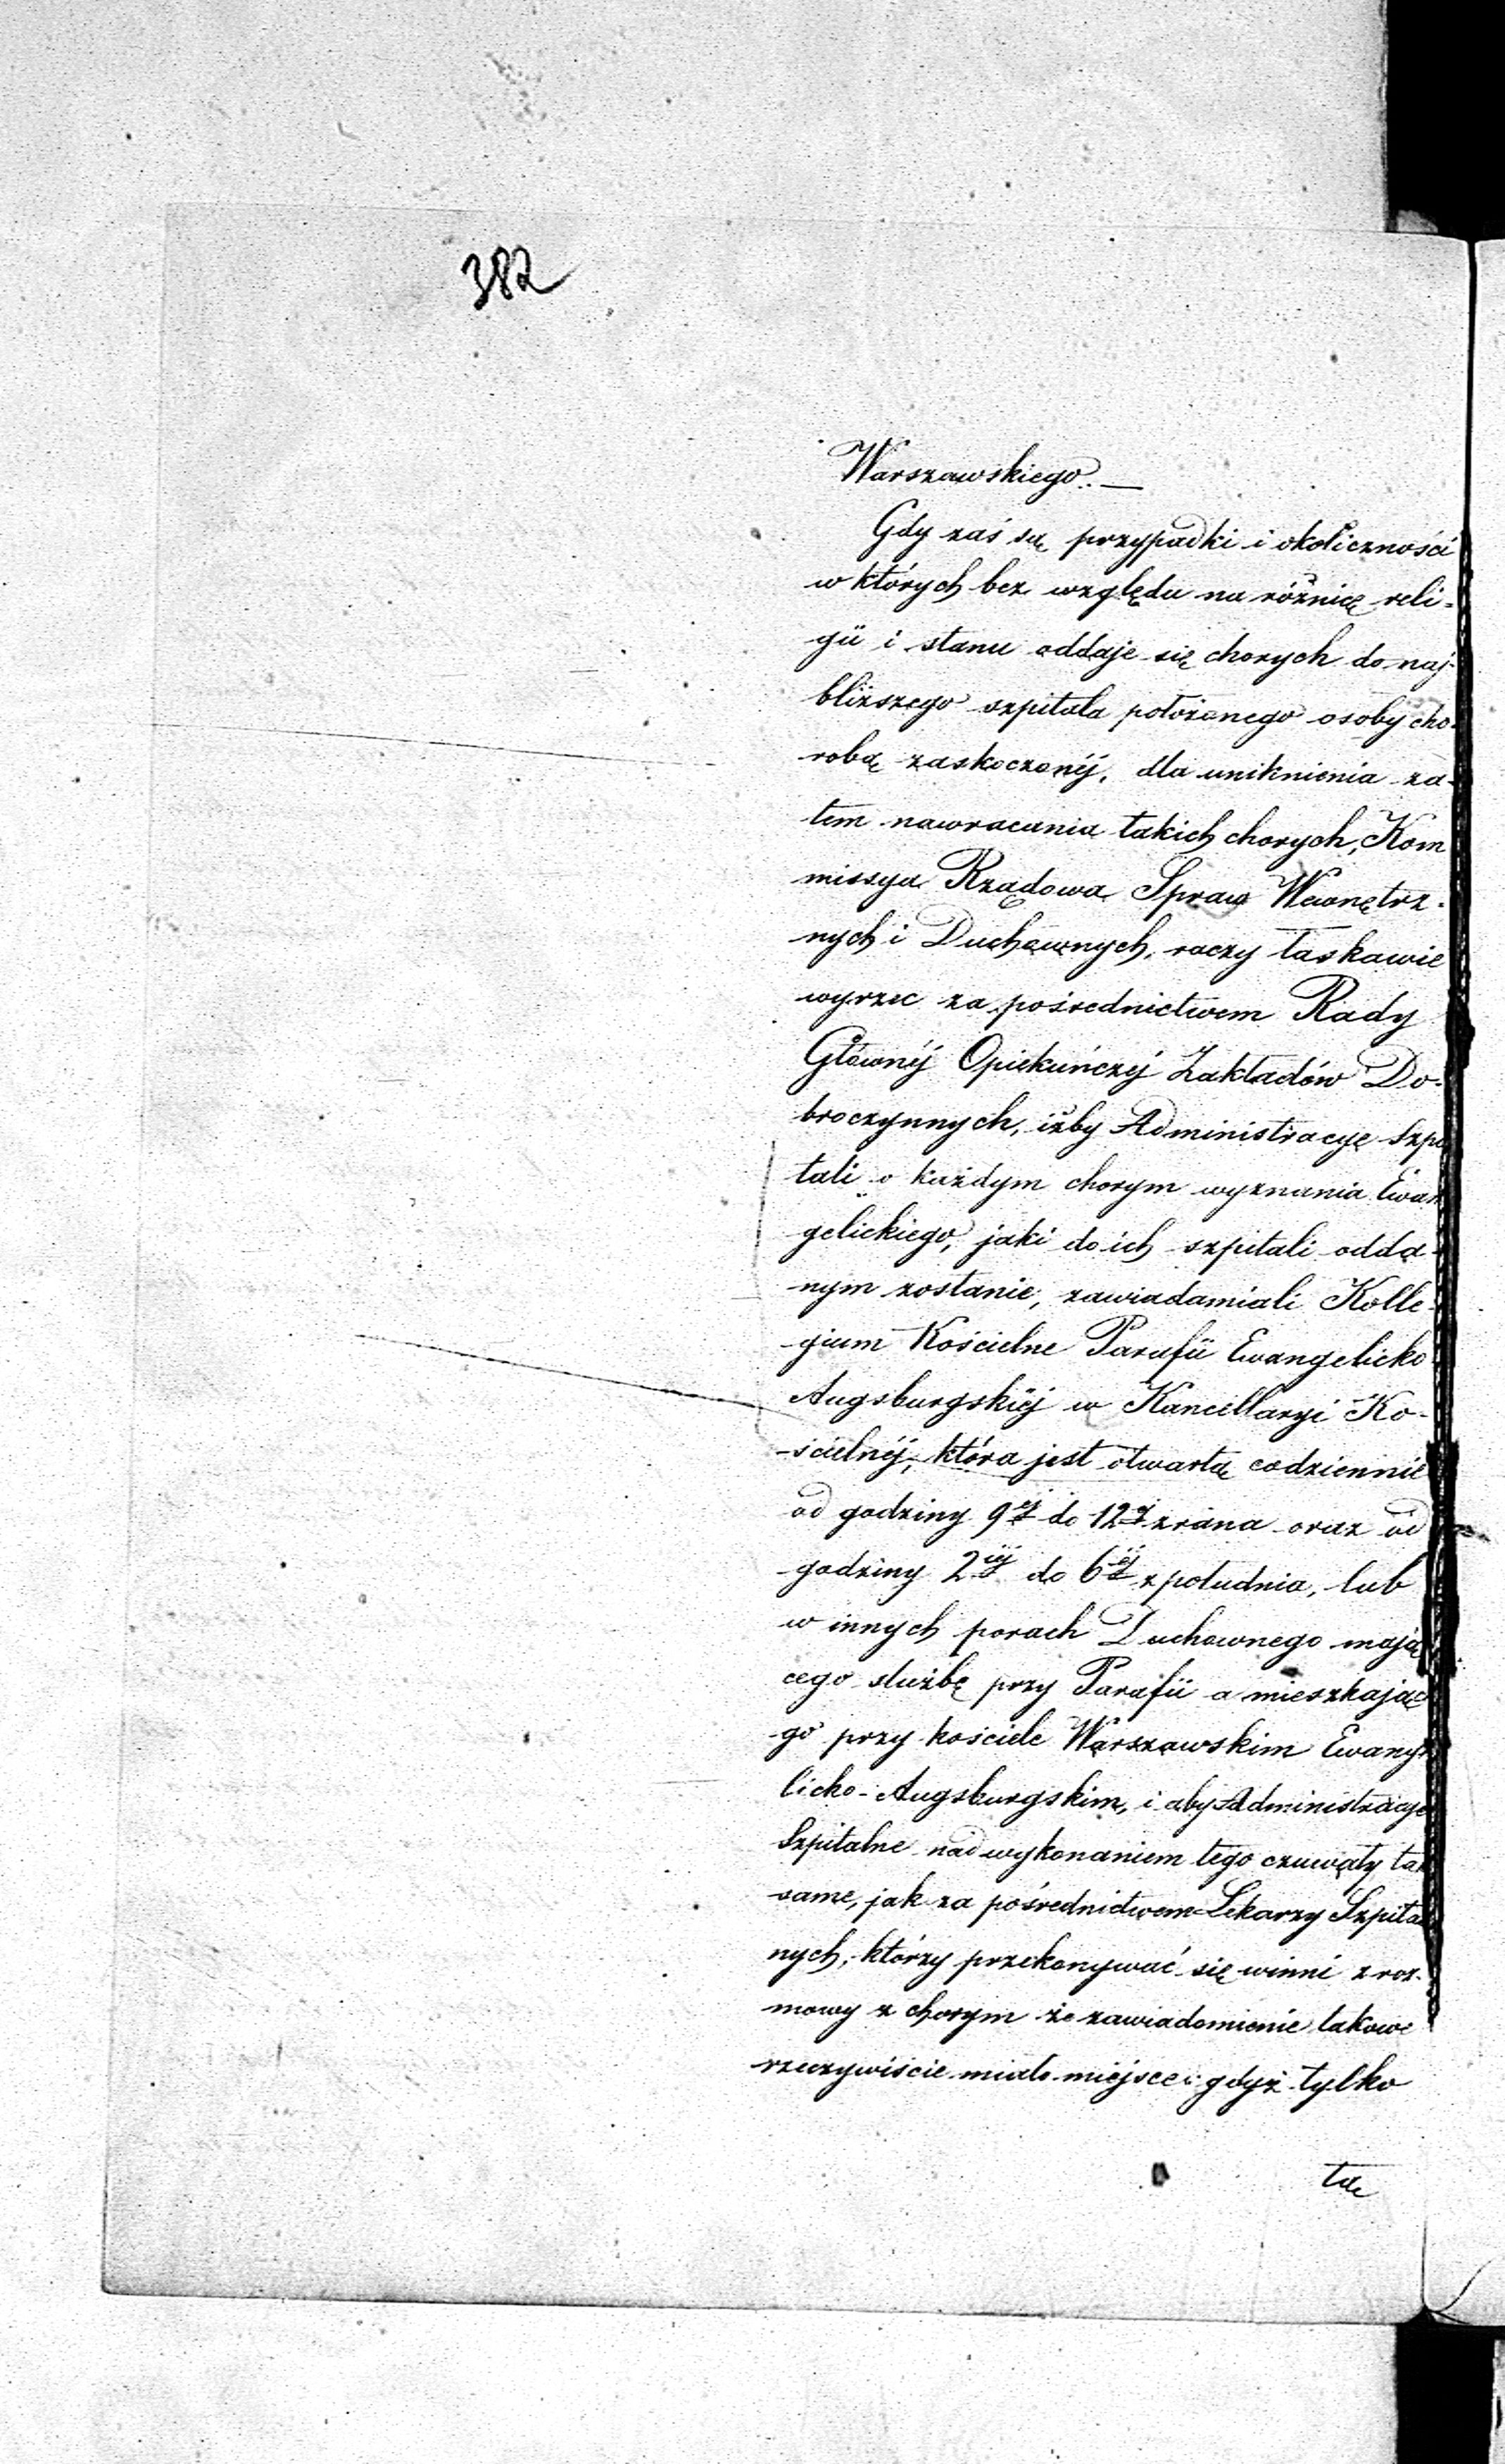 382
Warszawskiego. —
Gdy zaś są przypadki i okoliczności
w których bez względu na różnicę reli-
gii i stanu oddaje się chorych do naj-
bliższego szpitala położonego osoby cho-
robą zaskoczonéj, dla uniknienia za-
tem nawracania takich chorych, Kom
missya Rządowa Spraw Wewnętrz-
nych i Duchownych, raczy łaskawie
wyrzec za pośrednictwem Rady
Głównéj Opiekuńczéj Zakładów Do-
broczynnych, iżby Administracye szpi
tali o każdym chorym wyznania Ewan
gelickiego, jaki do ich szpitali odda-
nym zostanie, zawiadamiali Kolle-
gium Kościelne Parafii Ewangelicko
Augsburgskiéj w Kancellaryi Ko-
-ścielnéj, która jest otwartą codziennie
od godziny 9éj do 12éj zrana oraz od
godziny 2iéj do 6éj z południa, lub
w innych porach Duchownego mają
cego służbę przy Parafii a mieszkając
-go przy kościele Warszawskim Ewang
licko-Augsburgskim, i aby Administracye
Szpitalne nad wykonaniem tego czuwały tak
same, jak za pośrednictwem Lekarzy Szpital
nych, którzy przekonywać się winni z roz-
mowy z chorym że zawiadomienie takowe
rzeczywiście miało miejsce: gdyż tylko
tą